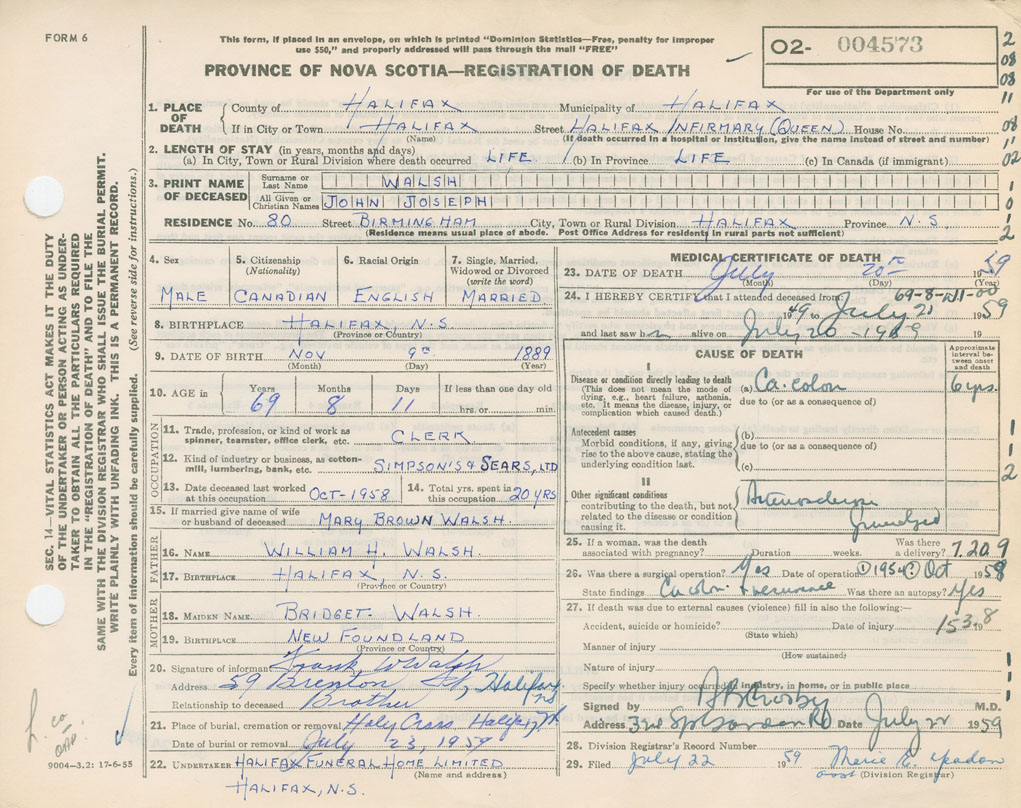 FORM 6
This form, if placed in an envelope, on which is printed "Dominion Statistics—Free, penalty for improper
use $50," and properly addressed will pass through the mail "FREE"
PROVINCE OF NOVA SCOTIA—REGISTRATION OF DEATH
O2- 004573
For use of the Department only
1. PLACE OF DEATH
County of HALIFAX Municipality of HALIFAX
If in City or Town HALIFAX Street HALIFAX INFIRMARY (QUEEN) House No.
(Name) (If death occurred in a hospital or institution, give the name instead of street and number)
2. LENGTH OF STAY (in years, months and days)
(a) In City, Town or Rural Division where death occurred LIFE (b) In Province LIFE (c) In Canada (if immigrant)
3. PRINT NAME OF DECEASED
Surname or Last Name WALSH
All Given or Christian Names JOHN JOSEPH
RESIDENCE No. 80 Street BIRMINGHAM City, Town or Rural Division HALIFAX Province N.S.
(Residence means usual place of abode. Post Office Address for residents in rural parts not sufficient)
4. Sex
MALE
5. Citizenship (Nationality)
CANADIAN
6. Racial Origin
ENGLISH
7. Single, Married, Widowed or Divorced (write the word)
MARRIED
8. BIRTHPLACE HALIFAX, N.S.
(Province or Country)
9. DATE OF BIRTH NOV 9TH 1889
(Month) (Day) (Year)
10. AGE in Years Months Days If less than one day old
69 8 11 hrs. or min.
OCCUPATION
11. Trade, profession, or kind of work as spinner, teamster, office clerk, etc. CLERK
12. Kind of industry or business, as cotton-mill, lumbering, bank, etc. SIMPSON'S & SEARS, LTD
13. Date deceased last worked at this occupation OCT-1958
14. Total yrs. spent in this occupation 20 YRS
15. If married give name of wife or husband of deceased MARY BROWN WALSH.
FATHER
16. NAME WILLIAM H. WALSH.
17. BIRTHPLACE HALIFAX, N.S.
(Province or Country)
MOTHER
18. MAIDEN NAME BRIDGET WALSH.
19. BIRTHPLACE NEW FOUNDLAND
(Province or Country)
20. Signature of informant Frank W Walsh
Address 59 Brenton St, Halifax NS
Relationship to deceased Brother
21. Place of burial, cremation or removal Holy Cross Halifax
Date of burial or removal July 23, 1959
22. UNDERTAKER HALIFAX FUNERAL HOME LIMITED
(Name and address)
HALIFAX, N.S.
MEDICAL CERTIFICATE OF DEATH
23. DATE OF DEATH July 20th 1959
(Month) (Day) (Year)
69-8-11-00
24. I HEREBY CERTIFY that I attended deceased from
1949 to July 20 1959
and last saw h alive on July 20 - 1959 19
CAUSE OF DEATH
Approximate interval between onset and death
I
Disease or condition directly leading to death
(This does not mean the mode of dying, e.g., heart failure, asthenia, etc. It means the disease, injury, or complication which caused death.)
(a) Ca. colon 6 yrs.
due to (or as a consequence of)
Antecedent causes
Morbid conditions, if any, giving rise to the above cause, stating the underlying condition last.
(b)
due to (or as a consequence of)
(c)
II
Other significant conditions
contributing to the death, but not related to the disease or condition causing it.
25. If a woman, was the death associated with pregnancy? Duration weeks. Was there a delivery? 7.20.9
26. Was there a surgical operation? Yes Date of operation ① 1954 ② Oct 1958
State findings Ca colon Was there an autopsy? Yes
27. If death was due to external causes (violence) fill in also the following:—
Accident, suicide or homicide? Date of injury 19
(State which) 153.8
Manner of injury
(How sustained)
Nature of injury
Specify whether injury occurred in industry, in home, or in public place
Signed by Crosby M.D.
Address Rd Date July 21 1959
28. Division Registrar's Record Number
29. Filed July 22 1959 Marie E.
(Division Registrar)
SEC. 14—VITAL STATISTICS ACT MAKES IT THE DUTY
OF THE UNDERTAKER OR PERSON ACTING AS UNDER-
TAKER TO OBTAIN ALL THE PARTICULARS REQUIRED
IN THE "REGISTRATION OF DEATH" AND TO FILE THE
SAME WITH THE DIVISION REGISTRAR WHO SHALL ISSUE THE BURIAL PERMIT.
WRITE PLAINLY WITH UNFADING INK. THIS IS A PERMANENT RECORD.
Every item of information should be carefully supplied. (See reverse side for instructions.)
9004-3.2: 17-6-55
2
08
08
11
08
11
02
1
0
1
2
1
1
2
1
1
1